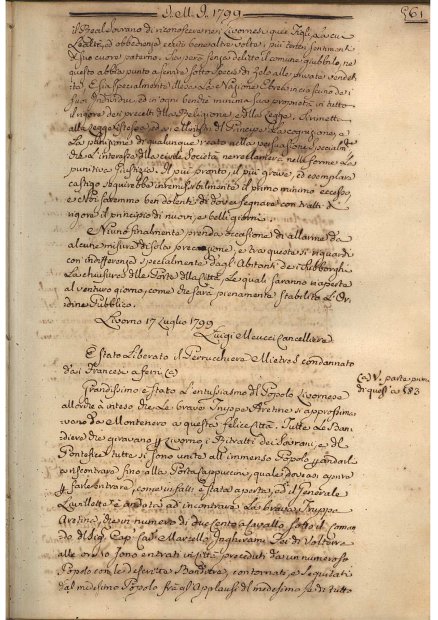 Dell' A. 1799 561
il Real Sovrano di riconoscere nei Livornesi quei Figli, la cui
Lealtà, ed obbedienza
suo cuore paterno. Sia però senza delitto il comune giubbilo, ne
questo abbia punto a servire sotto specie di zelo alle private vendet
te. E sia specialmente illesa la Nazione Ebrea in ciascuno dei
suoi Individui, ed in ogni benchè minima sua proprietà; in tutto
rigore dei precetti della Religione, e della Legge. Si rimetta
alla Legge istessa, ed ai Ministri del Principe la cognizione, e
la punizione di qualunque reato nella persuasione, specialm.
che l'interesse della civile Società ne reclamerà nelle forme la
punitiva Giustizia. Il più pronto, il più grave, ed esemplare
castigo seguirebbe irremissibilmente il primo minimo eccesso,
e Noi saremmo ben dolenti di dover segnare con tratti di
rigore il principio di nuovi, e belli giorni.
Niuno finalmente prenda occasione di allarme da
alcune misure di sola precauzione, e tra queste si riguardi
con indifferenza specialmente dagli Abitanti dei Subborghi
la chiusura delle Porte della Città, le quali saranno riaperte
al venturo giorno, come che sarà pienamente stabilito l'Or-
dine Pubblico.
Livorno 17 Luglio 1799
Luigi Meucci Cancelliere
È stato Liberato il Perrucchiere Mietres condannato
dai Francesi a (a)
(a) V. parte prim.
di questi a 583
Grandissimo è stato l'entusiasmo del Popolo Livornese
allorchè à inteso che la brava Truppa Aretina si approssima
vono da Montenero a questa felice Città. Tutte le Ban
diere che giravano p. Livorno, i Ritratti dei Sovrani, e del
Pontefice tutte si sono unite all'immenso Popolo, andar
a riscontrare fino alla Porta Cappuccina, quale dovea aprirsi
p. farle entrare, come infatti è stata aperta, ed il Generale
Lavillette è andato ad incontrare la brava Truppa
Aretina, che in numero di due cento a Cavallo sotto il coman
do del Sig. Cap. Cav. Marcello Inghirami Fei di Volterra
alle ore sono entrati in Città preceduti da un numeroso
Popolo con le descritte Bandiere, contornati, e seguitati
dal medesimo Popolo fra gli Applausi del medesimo, sù di tutto